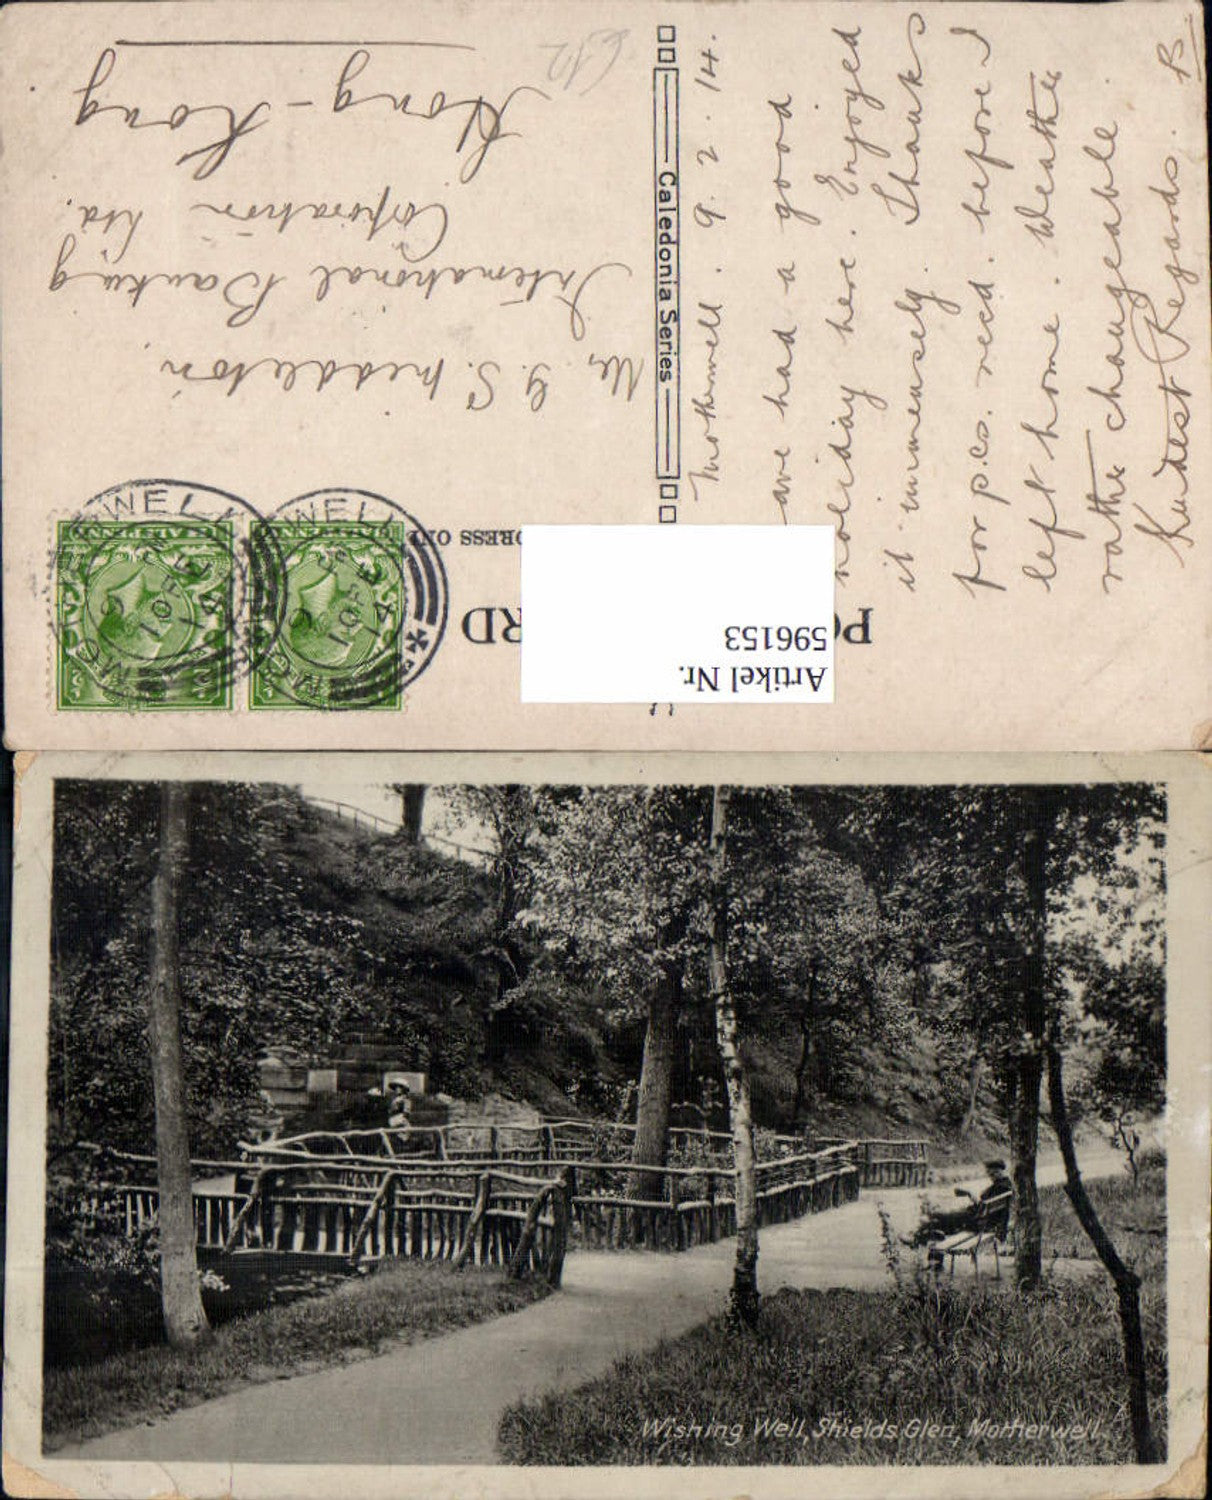 POST CARD
ADDRESS ONLY
Artikel Nr.
596153
Caledonia Series
MOTHERWELL
6
10 FE
14
MOTHERWELL
6
10 FE
14
Motherwell. 9.2.14.
ave had a good
holiday here. Enjoyed
it immensely. Thanks
for p.cs. recd. before I
left home. Weather
rather changeable.
Kindest Regards. B
Mr. G. S.
International Banking
Corporation Ltd.
Hong-Kong
Wishing Well, Shields Glen, Motherwell.